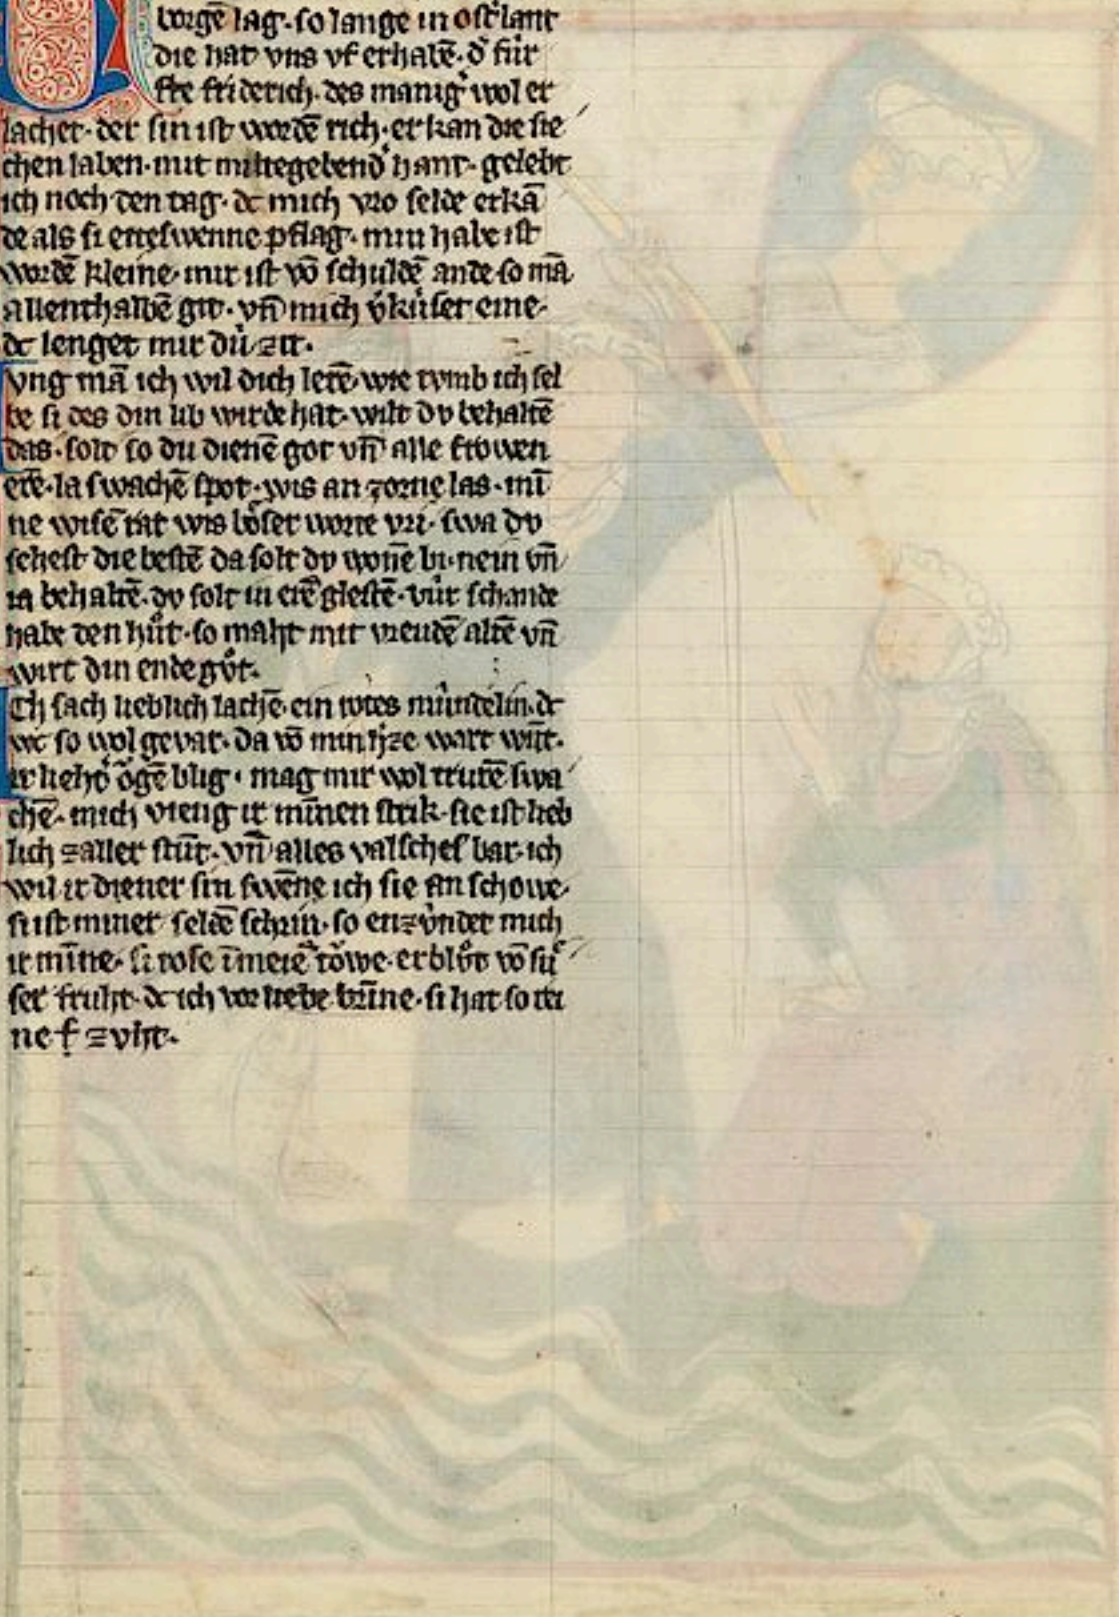 borgē lag· so lange in ostͬlant
die hat vns vf erhabē· dͬ fúr
ste friderich· des manigͬ wol er
lachet· der sin ist wordē rich· er kan die sie
chen laben· mit miltegebendͬ hant· gelebt
ich noch den tag· dc mich vro selde erkā
de als si etteswenne pflag· min habe ist
wordē kleine· mir ist vō schuldē ande so mā
allenthalbē git· vn̄ mich vͬkúset eine·
dc lenget mir dú zit·
vng mā ich wil dich lerē· wie tvmb ich sel
be si des din lib wirde hat· wilt dv behaltē
das· solt so du dienē got vn̄ alle frowen
erē· la swachē spot· wis an zorne las· mī
ne wisē rat wis bôser worte vri· swa dv
sehest die bestē da solt dv wonē bi· nein vn̄
ia behaltē· dv solt in erē glestē· vúr schande
habe den hůt· so maht mit vreudē altē vn̄
wirt din ende gůt·
Ch sach lieblich lachē· ein rotes múndelin· dc
wc so wol gevar· da vō min hͬze wart wūt·
ir liehtͬ ôgē blig· mag mir wol trurē swa
chē· mich vieng ir minnen strik· sie ist lieb
lich zaller stūt· vn̄ alles valsches bar· ich
wil ir diener sin swēne ich sie an schowe·
si ist miner seldē schrin· so enzúndet mich
ir mīne· si rose ī meiē tôwe· erblůt vō sú
ser fruht· dc ich vor liebe brīne· si hat so rei
ne f zvht·